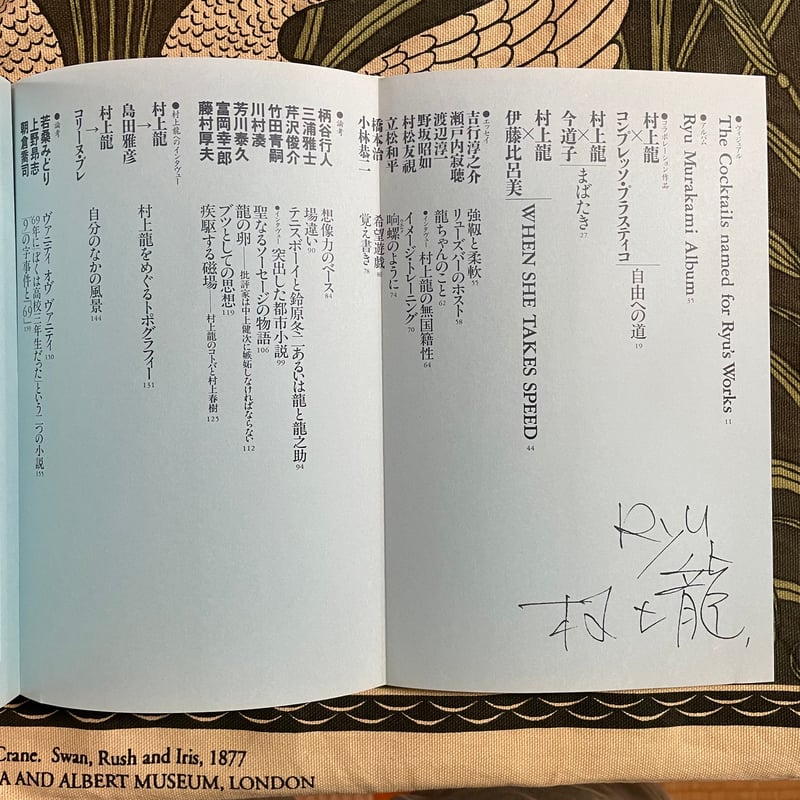 ●ヴィジュアル
The Cocktails named for Ryu's Works 11
●アルバム
Ryu Murakami Album 35
●コラボレーション作品
村上龍×コンプレッソ・プラスティコ 自由への道 19
村上龍×今道子 まばたき 27
村上龍×伊藤比呂美 WHEN SHE TAKES SPEED 44
●エッセイ
吉行淳之介 強靱と柔軟 55
瀬戸内寂聴 リューズバーのホスト 58
渡辺淳一 龍ちゃんのこと 62
野坂昭如 ●インタヴュー 村上龍の無国籍性 64
村松友視 イメージ・トレーニング 70
立松和平 响螺のように 74
橋本治 希望遊戯
小林恭二 覚え書き 78
Ryu
村上龍
●論考
柄谷行人 想像力のベース 84
三浦雅士 場違い 90
芹沢俊介 テニスボーイと鈴原冬二 あるいは龍と龍之助 94
竹田青嗣 ●インタヴュー 突出した都市小説 99
川村湊 聖なるソーセージの物語 106
芳川泰久 龍の卵——批評家は中上健次に嫉妬しなければならない 112
富岡幸一郎 ブツとしての思想 119
藤村厚夫 疾駆する磁場——村上龍のコトバと村上春樹 125
●村上龍へのインタヴュー
村上龍→島田雅彦 村上龍をめぐるトポグラフィー 131
村上龍→コリーヌ・ブレ 自分のなかの風景 144
●論考
若桑みどり ヴァニティ オヴ ヴァニティ 150
上野昂志 「'69年にぼくは高校三年生だった」という二つの小説 155
朝倉喬司 「9」の字事件と「69」
Crane. Swan, Rush and Iris, 1877
A AND ALBERT MUSEUM, LONDON